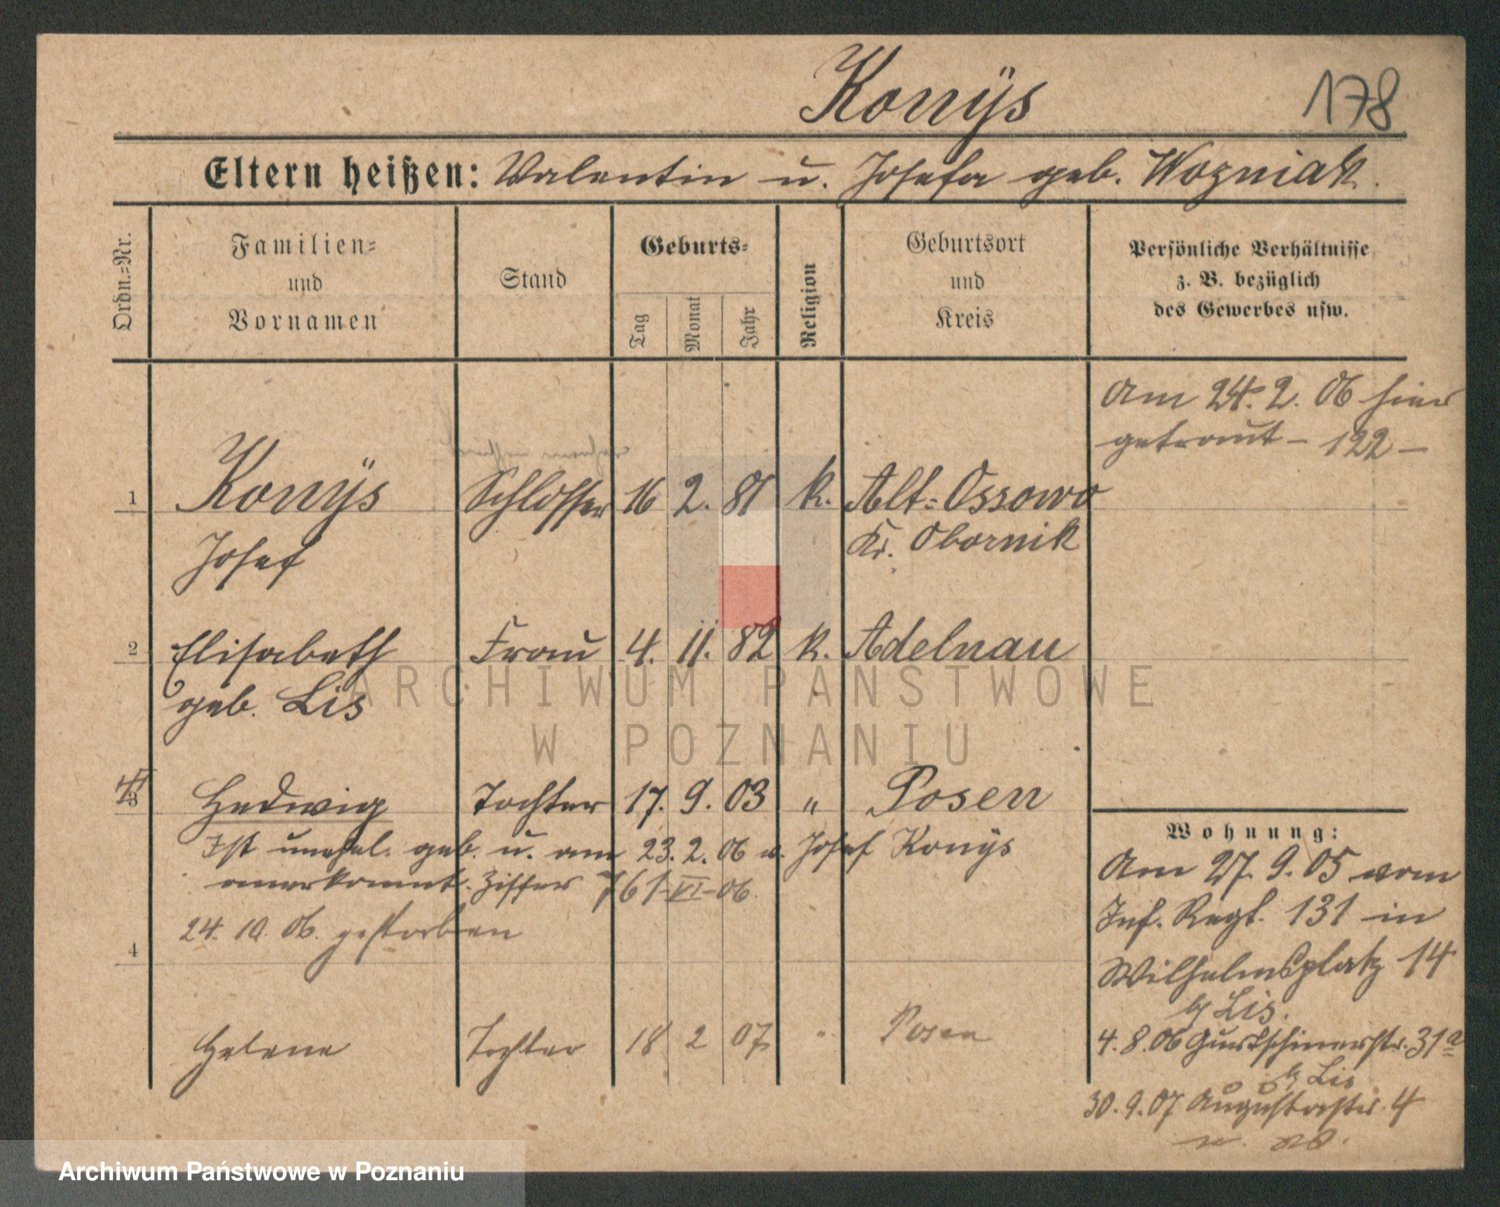 Konÿs 178
Eltern heißen: Valentin u. Josefa geb. Wozniak.
Ordn.-Nr.
Familien-
und
Vornamen
Stand
Geburts-
Tag
Monat
Jahr
Religion
Geburtsort
und
Kreis
Persönliche Verhältnisse
z. B. bezüglich
des Gewerbes usw.
Am 24. 2. 06 hier
getraut – 122 –
1 Konÿs Schlosser 16 2. 81 k. Alt-Ossowo
Josef Kr. Obornik
2 Elisabeth Frau 4. 11. 82 k. Adelnau
geb. Lis
3 Hedwig Tochter 17. 9. 03 " Posen
Ist unehel. geb. u. am 23. 2. 06 v. Josef Konÿs
anerkannt. Ziffer 761-VI-06.
24. 10. 06. gestorben
4
Helene Tochter 18 2 07 " Posen
Wohnung:
Am 27. 9. 05 vom
Inf. Regt. 131 in
Wilhelmsplatz 14
b/ Lis.
4. 8. 06 Gurtschinerstr. 31a
b/ Lis
30. 9. 07 Augustastr. 4
ARCHIWUM PAŃSTWOWE
W POZNANIU
Archiwum Państwowe w Poznaniu